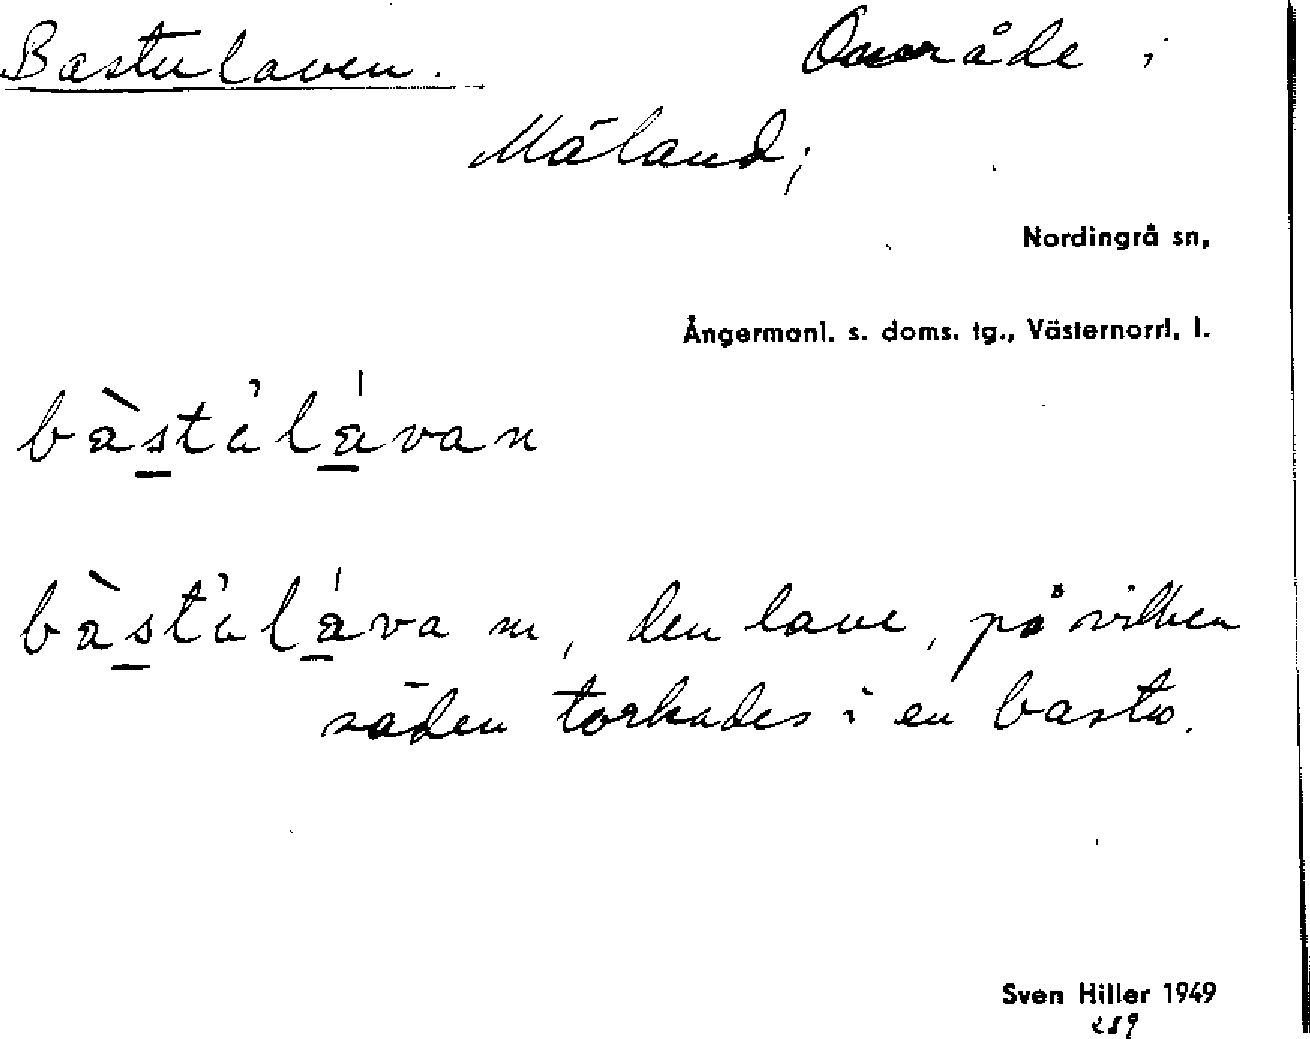 Bastulaven. Område i
Måland;
Nordingrå sn,
Ångermanl. s. doms. tg., Västernorrl. l.
bàstålávan
bàståláva m, den lave, på vilken
säden torkades i en bastu.
Sven Hiller 1949